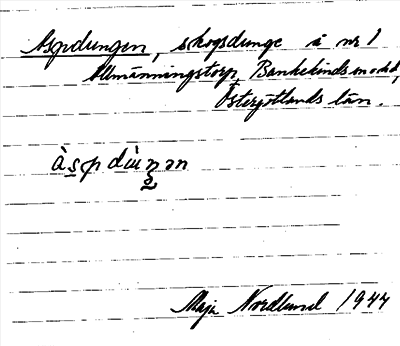 Aspdungen, skogsdunge å nr 1
Allmänningstorp, Bankekinds
Östergötlands län.
àspdùŋən
Maja Nordlund 1944